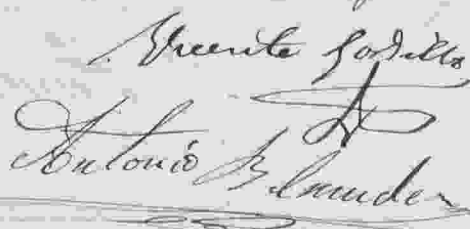 Vicente Gordillo
Antonio Belmudez